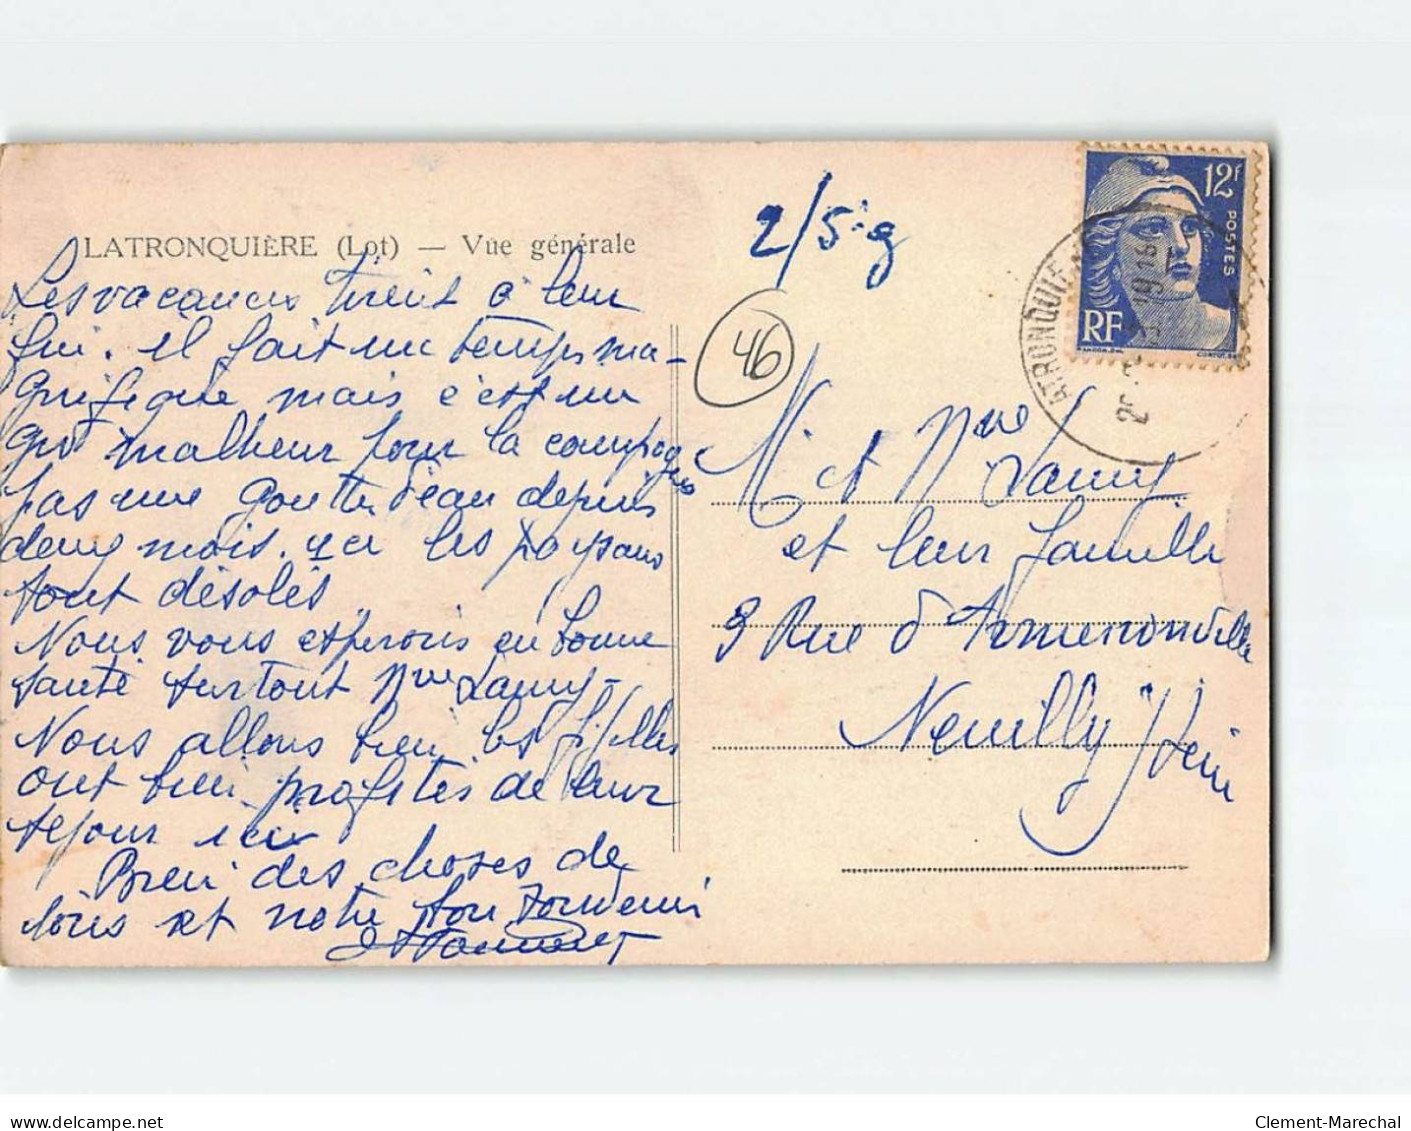 LATRONQUIÈRE (Lot) — Vue générale
Les vacances tirent à leur
fin. il fait un temps ma-
gnifique mais c'est un
gros malheur pour la campagne
pas une goutte d'eau depuis
deux mois. ici les paysans
sont désolés
Nous vous esperons en bonne
santé surtout Mme Lamy-
Nous allons bien les p. filles
ont bien profités de leur
séjour ici
Bien des choses de
tous et notre bon souvenir
2/5-g
46
12f
POSTES
RF
LATRONQUIE
M. et Mme Lamy
et leur famille
9 Rue d'Armenonville
Neuilly s/Seine
Clement-Marechal